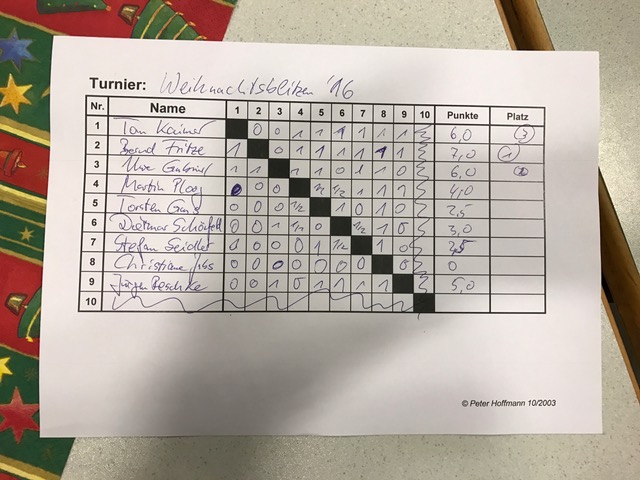 Turnier: Weihnachtsblitzen '16
Nr. Name 1 2 3 4 5 6 7 8 9 10 Punkte Platz
1 Tom 0 0 1 1 1 1 1 1 6,0 3
2 Bernd Fritze 1 0 1 1 1 1 1 1 7,0 1
3 Uwe 1 1 1 1 0 1 1 0 6,0 2
4 Martin Ploog 0 0 0 1/2 1/2 1 1 1 4,0
5 Torsten 0 0 0 1/2 1 0 1 0 2,5
6 Dietmar 0 0 1 1/2 0 1/2 1 0 3,0
7 Stefan Seidler 0 0 0 0 1 1/2 1 0
8 Christiane 0 0 0 0 0 0 0 0 0
9 Jürgen Peschke 0 0 1 0 1 1 1 1 5,0
10
© Peter Hoffmann 10/2003